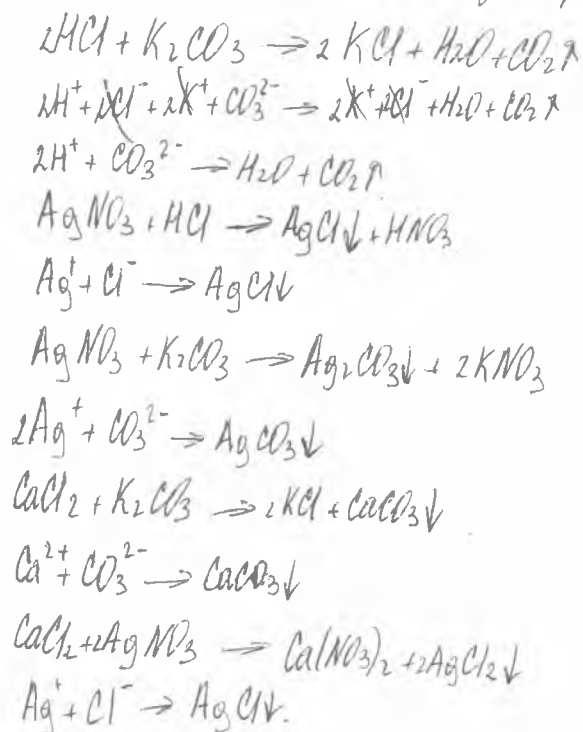 2HCl + K₂CO₃ → 2KCl + H₂O + CO₂↑
2H⁺ + 2Cl⁻ + 2K⁺ + CO₃²⁻ → 2K⁺ + 2Cl⁻ + H₂O + CO₂↑
2H⁺ + CO₃²⁻ → H₂O + CO₂↑
AgNO₃ + HCl → AgCl↓ + HNO₃
Ag⁺ + Cl⁻ → AgCl↓
AgNO₃ + K₂CO₃ → Ag₂CO₃↓ + 2KNO₃
2Ag⁺ + CO₃²⁻ → AgCO₃↓
CaCl₂ + K₂CO₃ → 2KCl + CaCO₃↓
Ca²⁺ + CO₃²⁻ → CaCO₃↓
CaCl₂ + 2AgNO₃ → Ca(NO₃)₂ + 2AgCl₂↓
Ag⁺ + Cl⁻ → AgCl↓.